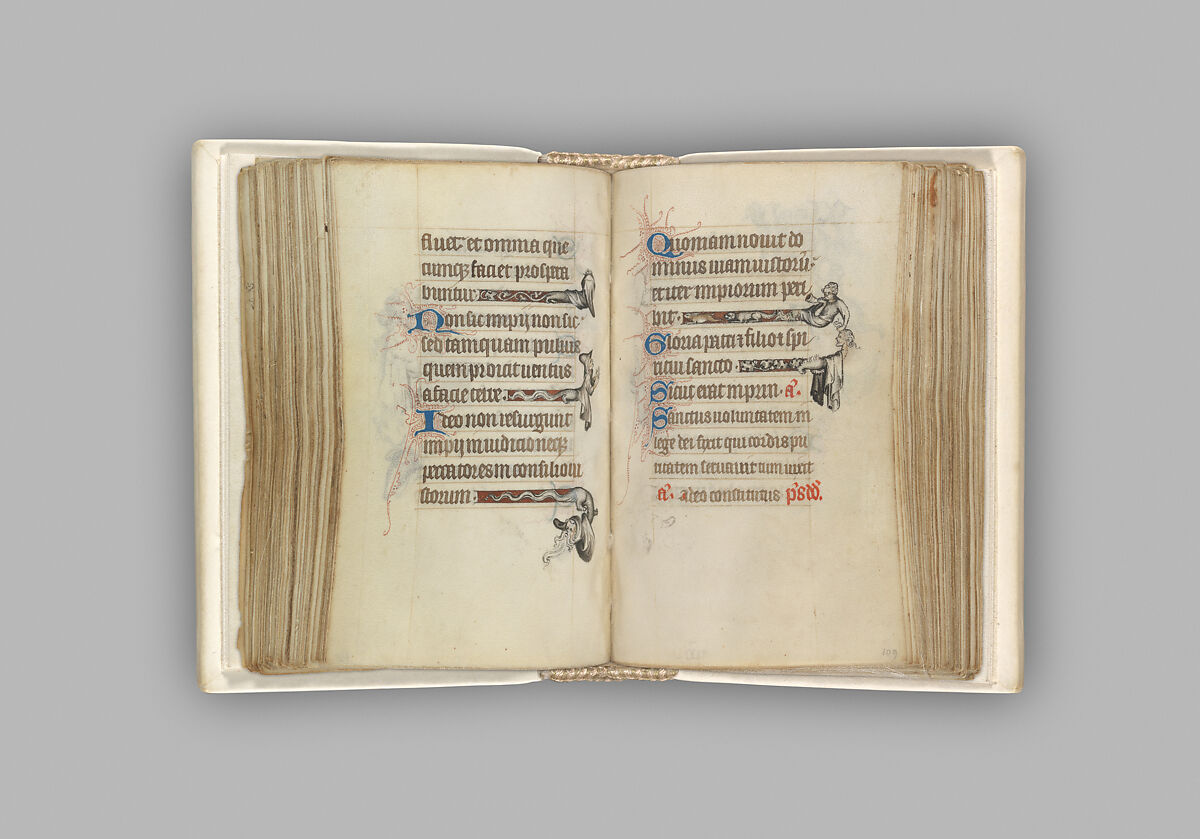 fluet· et omnia que
cumqꝫ faciet prospera
buntur
Non sic impij non sic
sed tamquam puluis
quem proicit uentus
a facie terre
Ideo non resurgunt
impij in iudicio neqꝫ
peccatores in consilio iu
storum
Quoniam nouit do
minus uiam iustorū
et iter impiorum peri
bit
Gloria patri ⁊ filio ⁊ spi
ritui sancto
Sicut erat in prin· a̅·
Sanctus uoluntatem in
lege dei fixit qui cordis pu
ritatem seruauit cum
a̅· a deo constitutus p̅s d̅d̅·
109